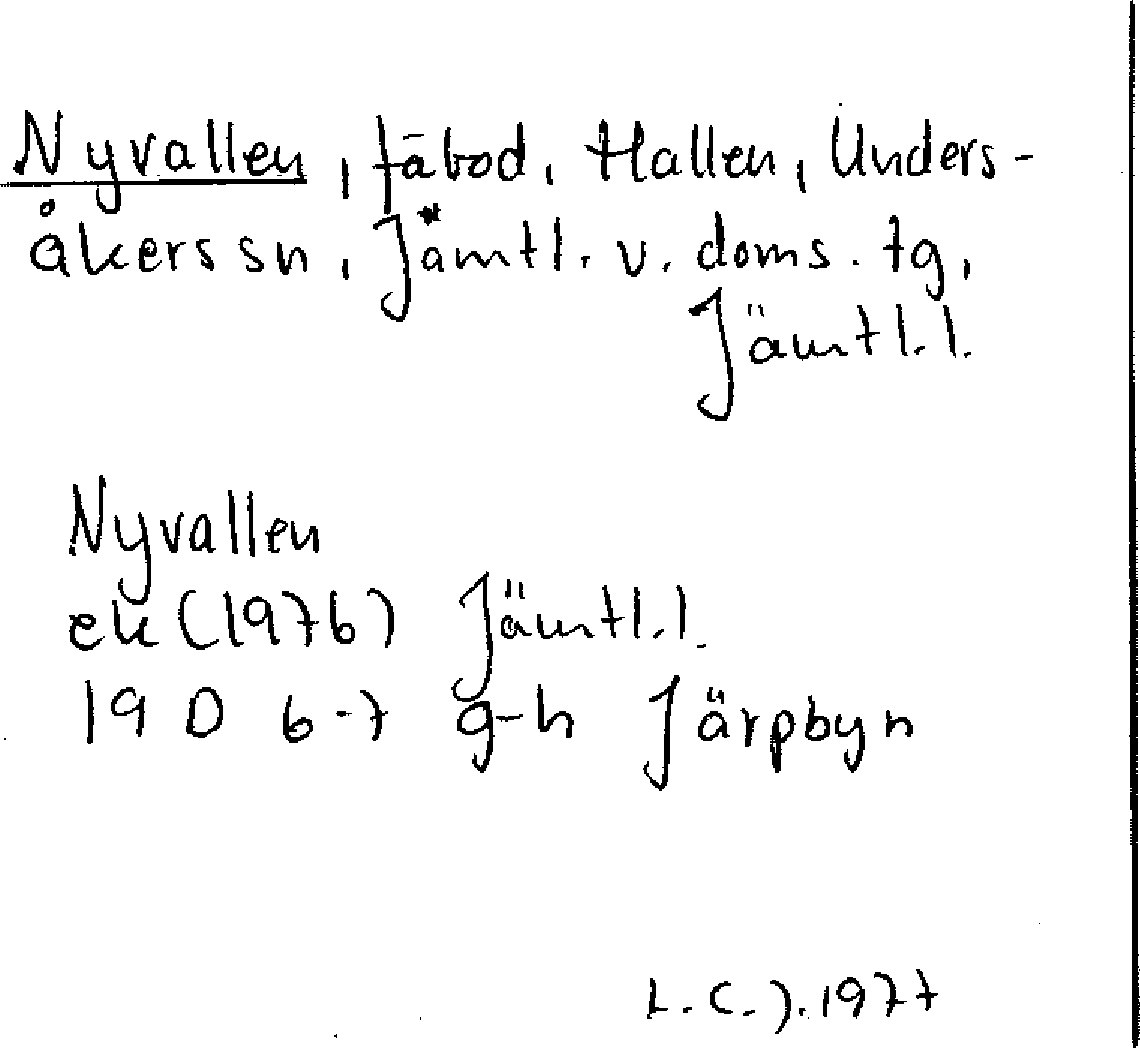 Nyvallen, fäbod, Hallen, Unders-
åkers sn, Jämtl. v. doms. tg,
Jämtl. l.
Nyvallen
ek (1976) Jämtl. l.
19 D 6-7 g-h Järpbyn
L. C. J. 1977